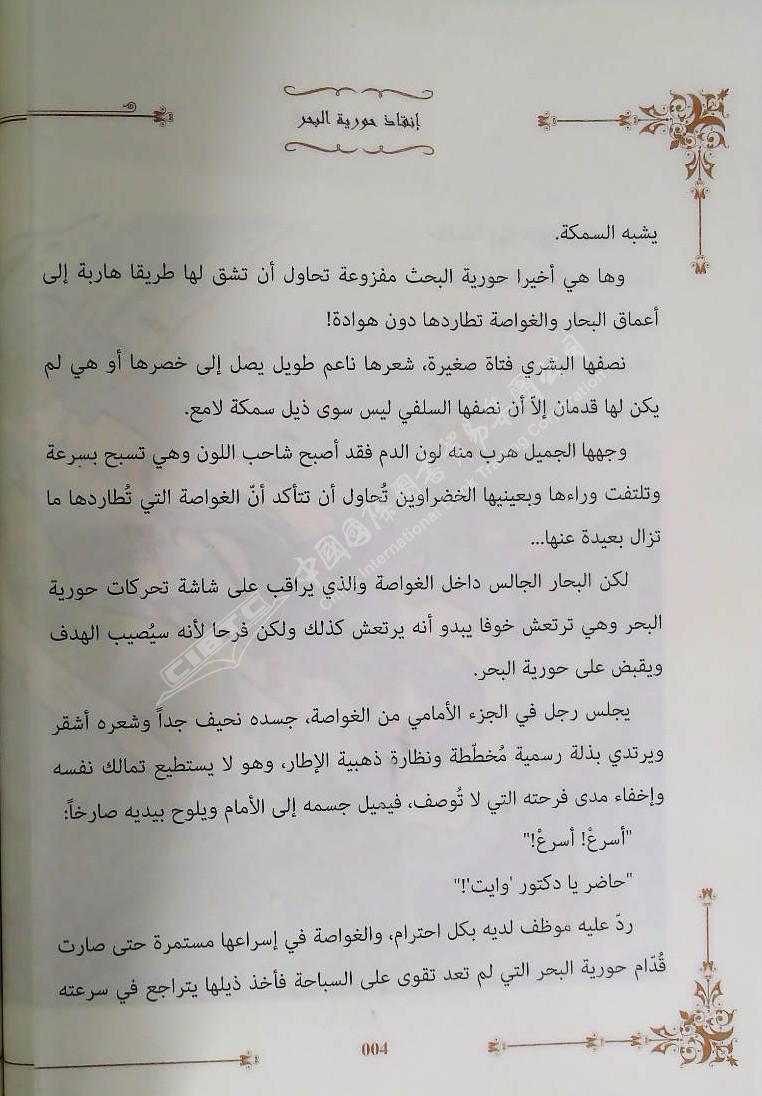 إنقاذ حورية البحر
يشبه السمكة.
وها هي أخيرا حورية البحث مفزوعة تحاول أن تشق لها طريقا هاربة إلى
أعماق البحار والغواصة تطاردها دون هوادة!
نصفها البشري فتاة صغيرة، شعرها ناعم طويل يصل إلى خصرها أو هي لم
يكن لها قدمان إلاّ أن نصفها السلفي ليس سوى ذيل سمكة لامع.
وجهها الجميل هرب منه لون الدم فقد أصبح شاحب اللون وهي تسبح بسرعة
وتلتفت وراءها وبعينيها الخضراوين تُحاول أن تتأكد أنّ الغواصة التي تُطاردها ما
تزال بعيدة عنها...
لكن البحار الجالس داخل الغواصة والذي يراقب على شاشة تحركات حورية
البحر وهي ترتعش خوفا يبدو أنه يرتعش كذلك ولكن فرحا لأنه سيُصيب الهدف
ويقبض على حورية البحر.
يجلس رجل في الجزء الأمامي من الغواصة، جسده نحيف جداً وشعره أشقر
ويرتدي بذلة رسمية مُخطّطة ونظارة ذهبية الإطار، وهو لا يستطيع تمالك نفسه
وإخفاء مدى فرحته التي لا تُوصف، فيميل جسمه إلى الأمام ويلوح بيديه صارخاً:
"أسرعْ! أسرعْ!"
"حاضر يا دكتور 'وايت'!"
ردّ عليه موظف لديه بكل احترام، والغواصة في إسراعها مستمرة حتى صارت
قُدّام حورية البحر التي لم تعد تقوى على السباحة فأخذ ذيلها يتراجع في سرعته
004
中国国际图书贸易集团公司
China International Book Trading Corporation
CIBTC